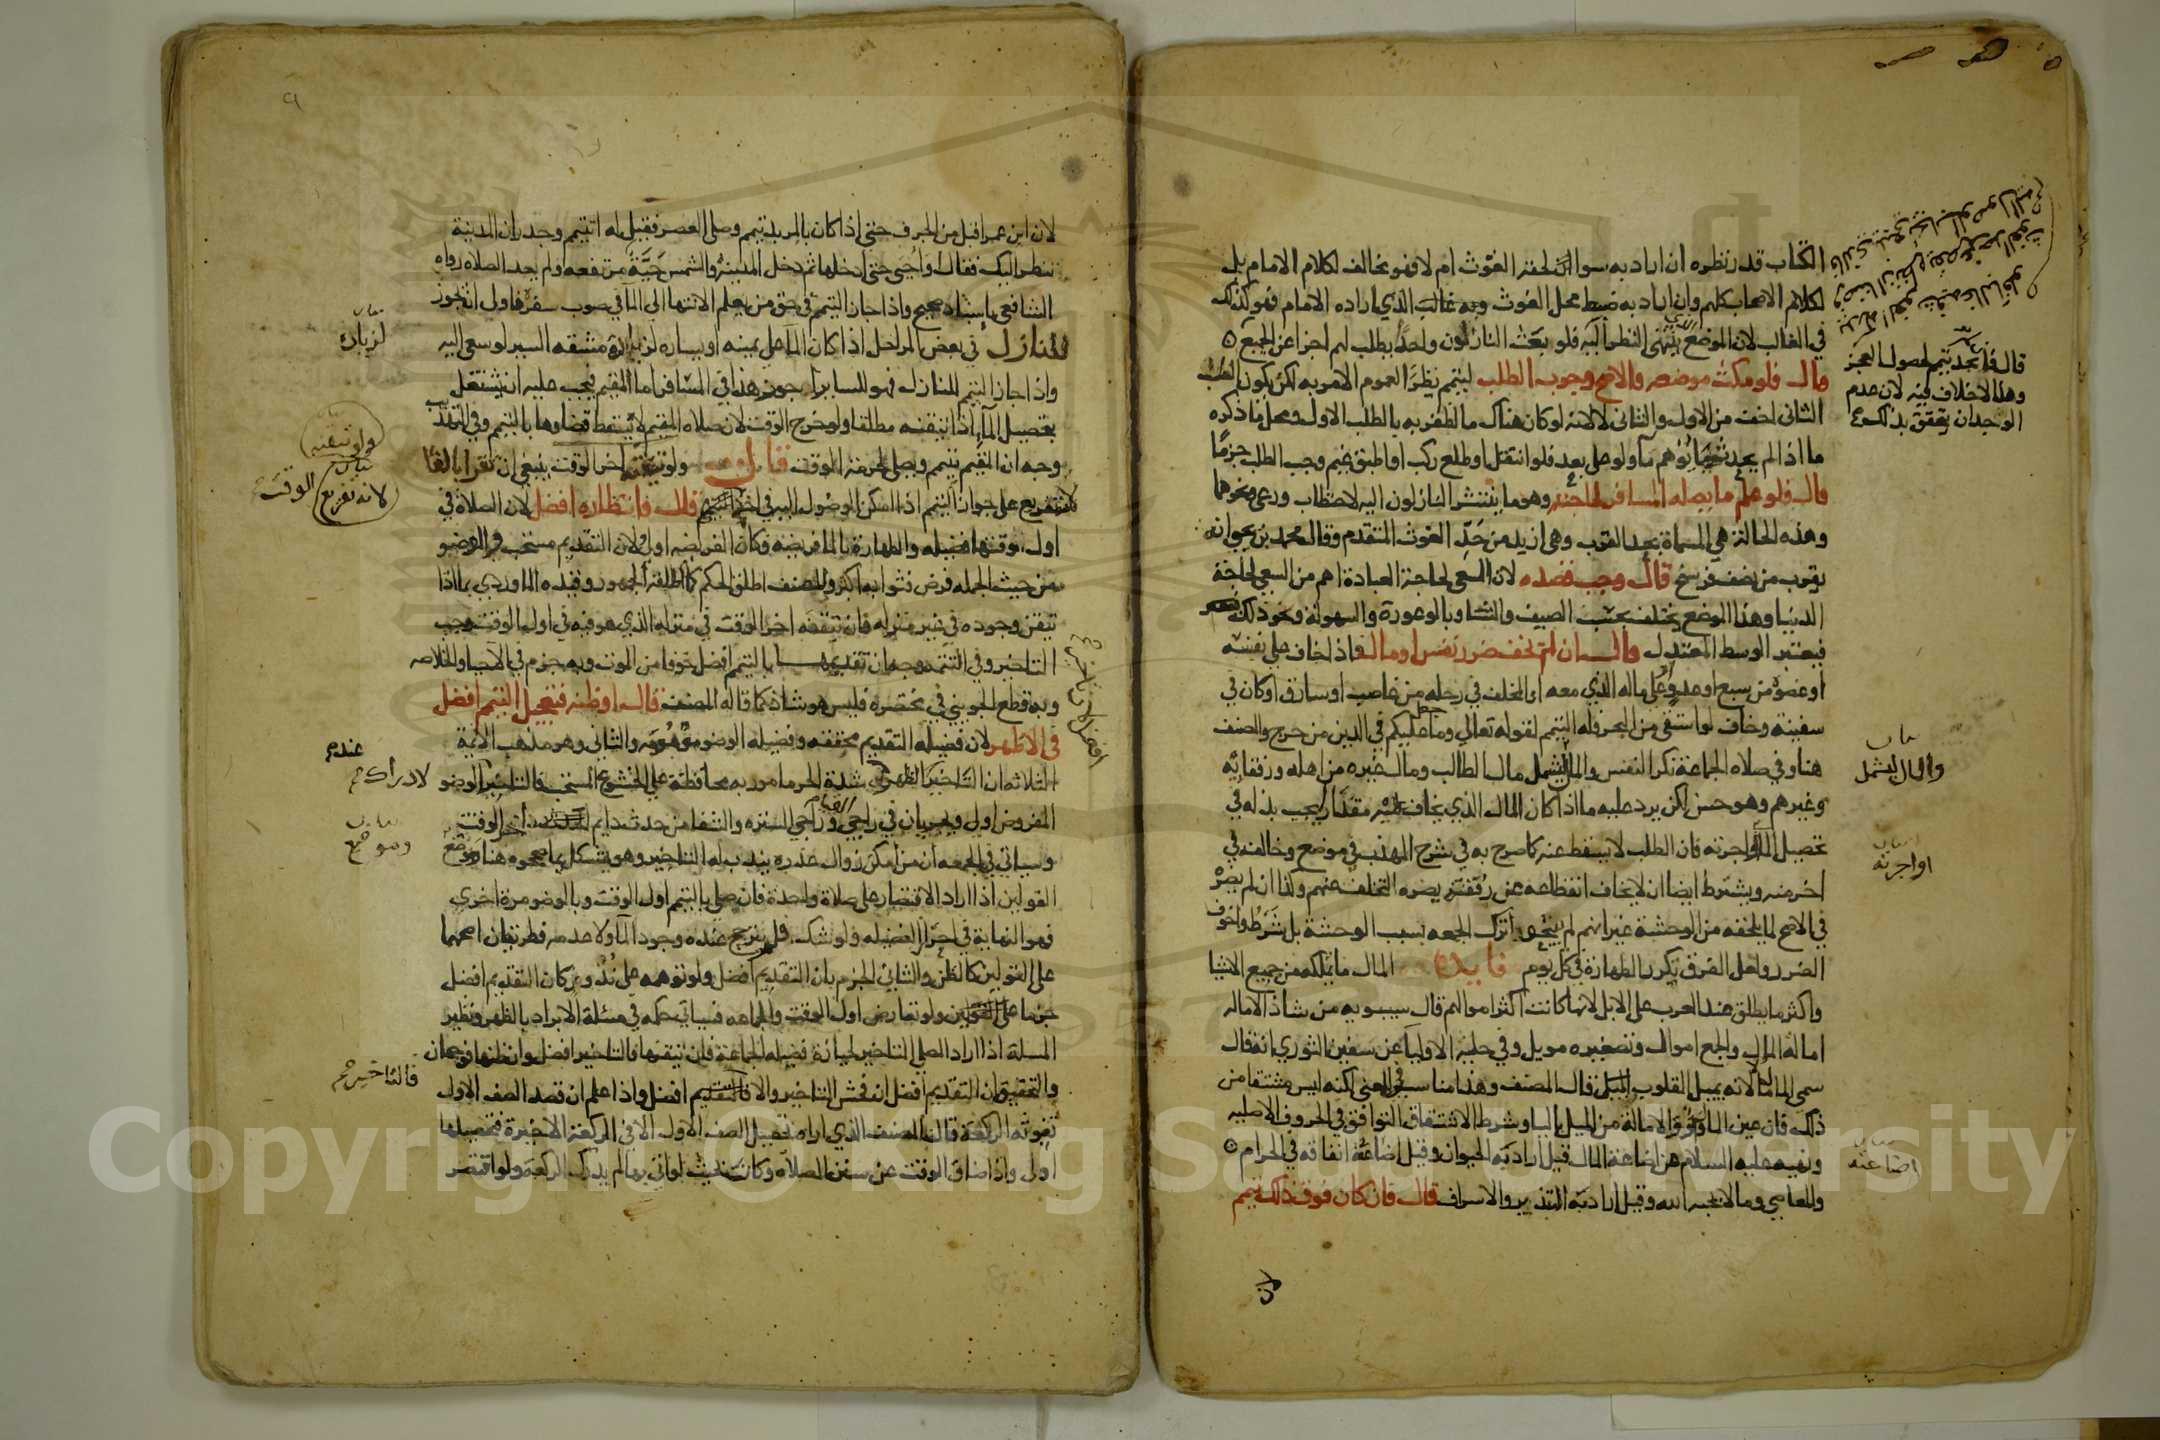 الكتاب قدر نظره ان اراد به سوا لحقه الغوث ام لا فهو مخالف لكلام الامام بل
لكلام الاصحاب كلهم وان اراد به ضبط محل الغوث وبه غالب الذي اراده الامام فهو كذلك
في الغالب لان الموضع ينتهي النظر اليه فلو بعث النازلون واحدا يطلب لهم اجزا عن الجميع
قال فلو مكث موضعه فالاصح وجوب الطلب ليتيمم نظرا لعموم الامر به لكن يكون الطلب
الثاني اخف من الاول والثاني لا لانه لو كان هناك ما لظفر به بالطلب الاول ومحل ما ذكره
ما اذا لم يحدث ما يوهم ماء ولو على بعد فلو انتقل او طلع ركب او اطبق غيم وجب الطلب جزما
قال فلو علم ما يصله المسافر لحاجته وهو ما ينتشر النازلون اليه لاحتطاب ورعي ونحوهما
وهذه الحالة هي المسماة بحد القرب وهي ازيد من حد الغوث المتقدم وقال محمد بن يحيى انه
يقرب من نصف فرسخ قال وجب قصده لان السعي لحاجة العبادة اهم من السعي لحاجة
الدنيا وهذا الموضع يختلف بحسب الصيف والشتا وبالوعورة والسهولة ونحو ذلك
فيعتبر الوسط المعتدل قال ان لم يخف ضرر نفس او مال فاذا خاف على نفسه
او عضوه من سبع او عدو او على ماله الذي معه او المخلف في رحله من غاصب او سارق او كان في
سفينة وخاف لو استقى من البحر فله التيمم لقوله تعالى وما جعل عليكم في الدين من حرج والمصنف
هنا وفي صلاه الجماعة نكر النفس والمال ليشمل مال الطالب ومال غيره من اهله ورفقائه
وغيرهم وهو حسن لكن يرد عليه ما اذا كان المال الذي يخاف عليه مقدارا يجب بذله في
تحصيل الماء او اجرته فان الطلب لا يسقط عنه كما صرح به في شرح المهذب في موضع وخالفه في
اخر منه ويشترط ايضا ان لا يخاف انقطاعه عن رفقته يضره التخلف عنهم وكذا ان لم يضر
في الاصح لما يلحقه من الوحشة غير انهم لم يبيحوا ترك الجمعه بسبب الوحشة بل شرطوا خوف
الضرر ولعل الفرق تكرر الطهارة في كل يوم فايدة المال ما يملكه من جميع الاشيا
واكثر ما يطلق عند العرب على الابل لانها كانت اكثر اموالهم قال سيبويه من شاذ الامالة
امالة المال والجمع اموال وتصغيره مويل وفي حلية الاوليا عن سفين الثوري انه قال
سمي المال لانه يميل القلوب قال المصنف وهذا مناسب في المعنى لكنه ليس مشتقا من
ذلك فان عين المال واو والامالة من الميل باليا وشرط الاشتقاق التوافق في الحروف الاصليه
ونهيه عليه السلام عن اضاعة المال قيل اراد به الحيوان وقيل اضاعة انفاقه في الحرام
والمعاصي وما لا يحبه الله وقيل اراد به التبذير والاسراف قال فان كان فوق ذلك تيمم
قال فان لم يجد تيمم لحصول العجز
وهذا لا خلاف فيه لان عدم
الوجدان يتحقق بذلك
والمال ليشمل
او اجرته
اضاعته
لان ابن عمر اقبل من الجرف حتى اذا كان بالمربد تيمم وصلى العصر فقيل له اتتيمم وجدران المدينة
تنظر اليك فقال او احيى حتى ادخلها ثم دخل المدينة والشمس حية مرتفعه ولم يعد الصلاه رواه
الشافعي باسناد صحيح واذا جاز التيمم في حق من يعلم الانتها الى الما في صوب سفره فاولى ان يجوز
للنازل في بعض المراحل اذا كان الما على يمينه او يساره لزيادة مشقه السير لو سعى اليه
واذا جاز التيمم للنازل فهو للساير اجوز هذا في المسافر اما المقيم فيجب عليه ان يشتغل
بتحصيل الما اذا تيقنه مطلقا ولو خرج الوقت لان صلاه المقيم لا يسقط قضاوها بالتيمم وفي التهذيب
وجه ان المقيم يتيمم ويصلي لحرمة الوقت قال ولو تيقنه اخر الوقت ينبغي ان تقرا بالفا
لانه تفريع على جواز التيمم اذا امكن الوصول اليه في اخر الوقت قال فانتظاره افضل لان الصلاة في
اول وقتها فضيله والطهارة بالما فريضه فكان الفريضه اولى ولان التقديم مستحب والوضو
من حيث الجمله فرض فثوابه اكثر والمصنف اطلق الحكم كما اطلقه الجمهور وقيده الماوردي بما اذا
تيقن وجوده في غير منزله فان تيقنه اخر الوقت في منزله الذي هو فيه في اول الوقت وجب
التاخير وفي التتمه وجه ان تقديمها بالتيمم افضل خوفا من الموت وبه جزم في الاحيا والخلاصه
وبه قطع الجويني في مختصره فليس هو شاذ كما قاله المصنف قال او ظنه فتعجيل التيمم افضل
في الاظهر لان فضيلة التقديم محققه وفضيلة الوضو موهومه والثاني وهو مذهب الايمة
الثلاثه ان التاخير افضل شدة الحر مامور به محافظة على الخشوع المستحب فالتاخير لادراك الوضو
المفروض اولى ويجريان في راجي القيام وراجي السترة والشفا من حدث دايم اخر الوقت
وسياتي في الجمعه ان من امكن زوال عذره يندب له التاخير وهو يشكل بما صححوه هنا وموضع
القولين اذا اراد الاقتصار على صلاة واحدة فان صلى بالتيمم اول الوقت وبالوضو مرة اخرى
فهو النهاية في احراز الفضيله ولو شك فلم يترجح عنده وجود الما ولا عدمه فطريقان اصحهما
على القولين كالظن والثاني الجزم بان التقديم افضل ولو توهمه على ندور كان التقديم افضل
جزما ولو تعارض اول الوقت والجماعه فسياتي حكمه في مسئلة الابراد بالظهر ونظير
المسلة اذا اراد المصلي التاخير لحيازة فضيلة الجماعة فان تيقنها فالتاخير افضل وان ظنها فوجهان
والتحقيق ان التقديم افضل ان فحش التاخير والا فالتاخير افضل واذا علم ان قصد الصف الاول
تفوته الركعة قال المصنف الذي اراه تحصيل الصف الاول الا في الركعة الاخيرة فتحصيلها
اولى واذا ضاق الوقت عن سنن الصلاة وكانت بحيث لو اتى بها لم يدرك الركعة ولو اقتصر
لزيادة
ولو تيقنه
لانه تفريع
الوقت
عنده
لادراك
وموضع
فالتاخير
Copyright © King Saud University